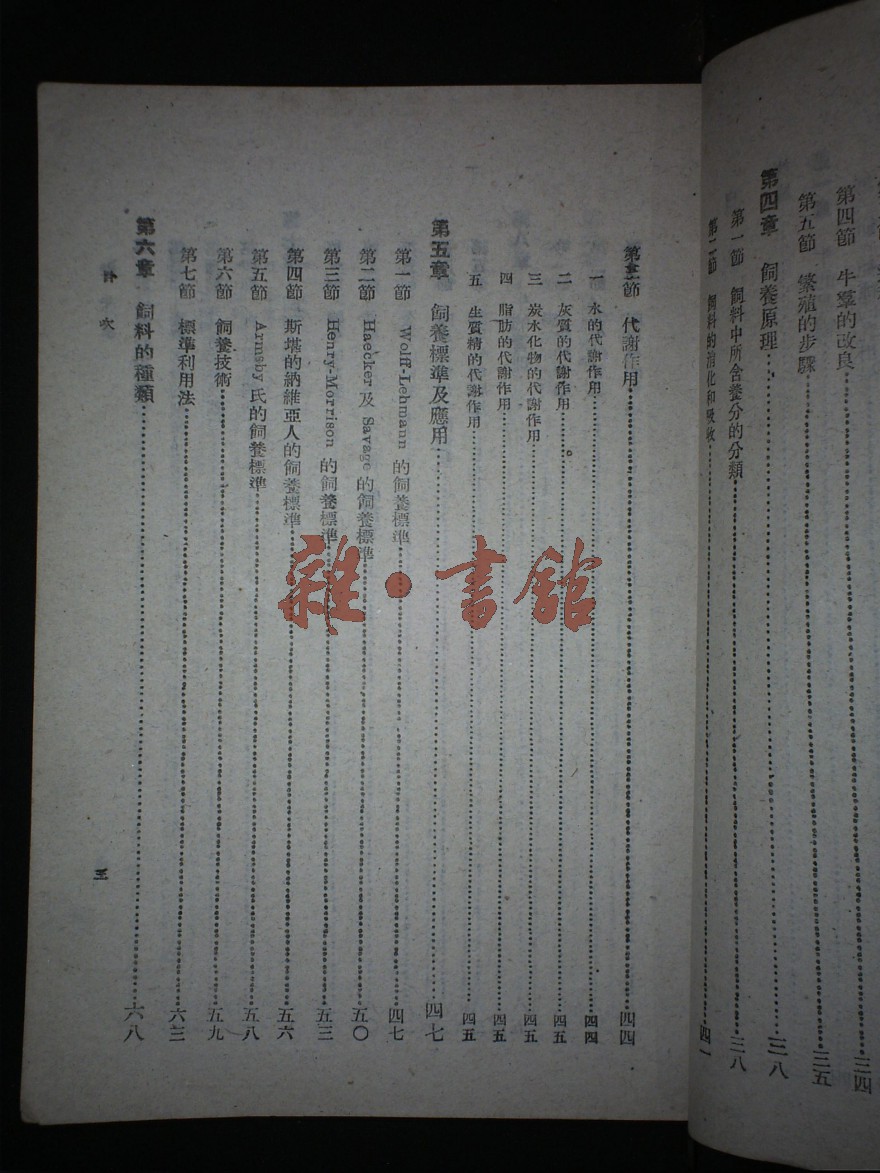 第四節 牛羣的改良……三四
第五節 繁殖的步驟……三五
第四章 飼養原理……三八
第一節 飼料中所含養分的分類……三八
第二節 飼料的消化和吸收……四一
第三節 代謝作用……四四
一 水的代謝作用……四四
二 灰質的代謝作用……四五
三 炭水化物的代謝作用……四五
四 脂肪的代謝作用……四五
五 生質精的代謝作用……四五
第五章 飼養標準及應用……四七
第一節 Wolff-Lehmann 的飼養標準……四七
第二節 Haecker 及 Savage 的飼養標準……五〇
第三節 Henry-Morrison 的飼養標準……五三
第四節 斯堪的納維亞人的飼養標準……五六
第五節 Armsby 氏的飼養標準……五八
第六節 飼養技術……五九
第七節 標準利用法……六三
第六章 飼料的種類……六八
目次
三
雜·書館